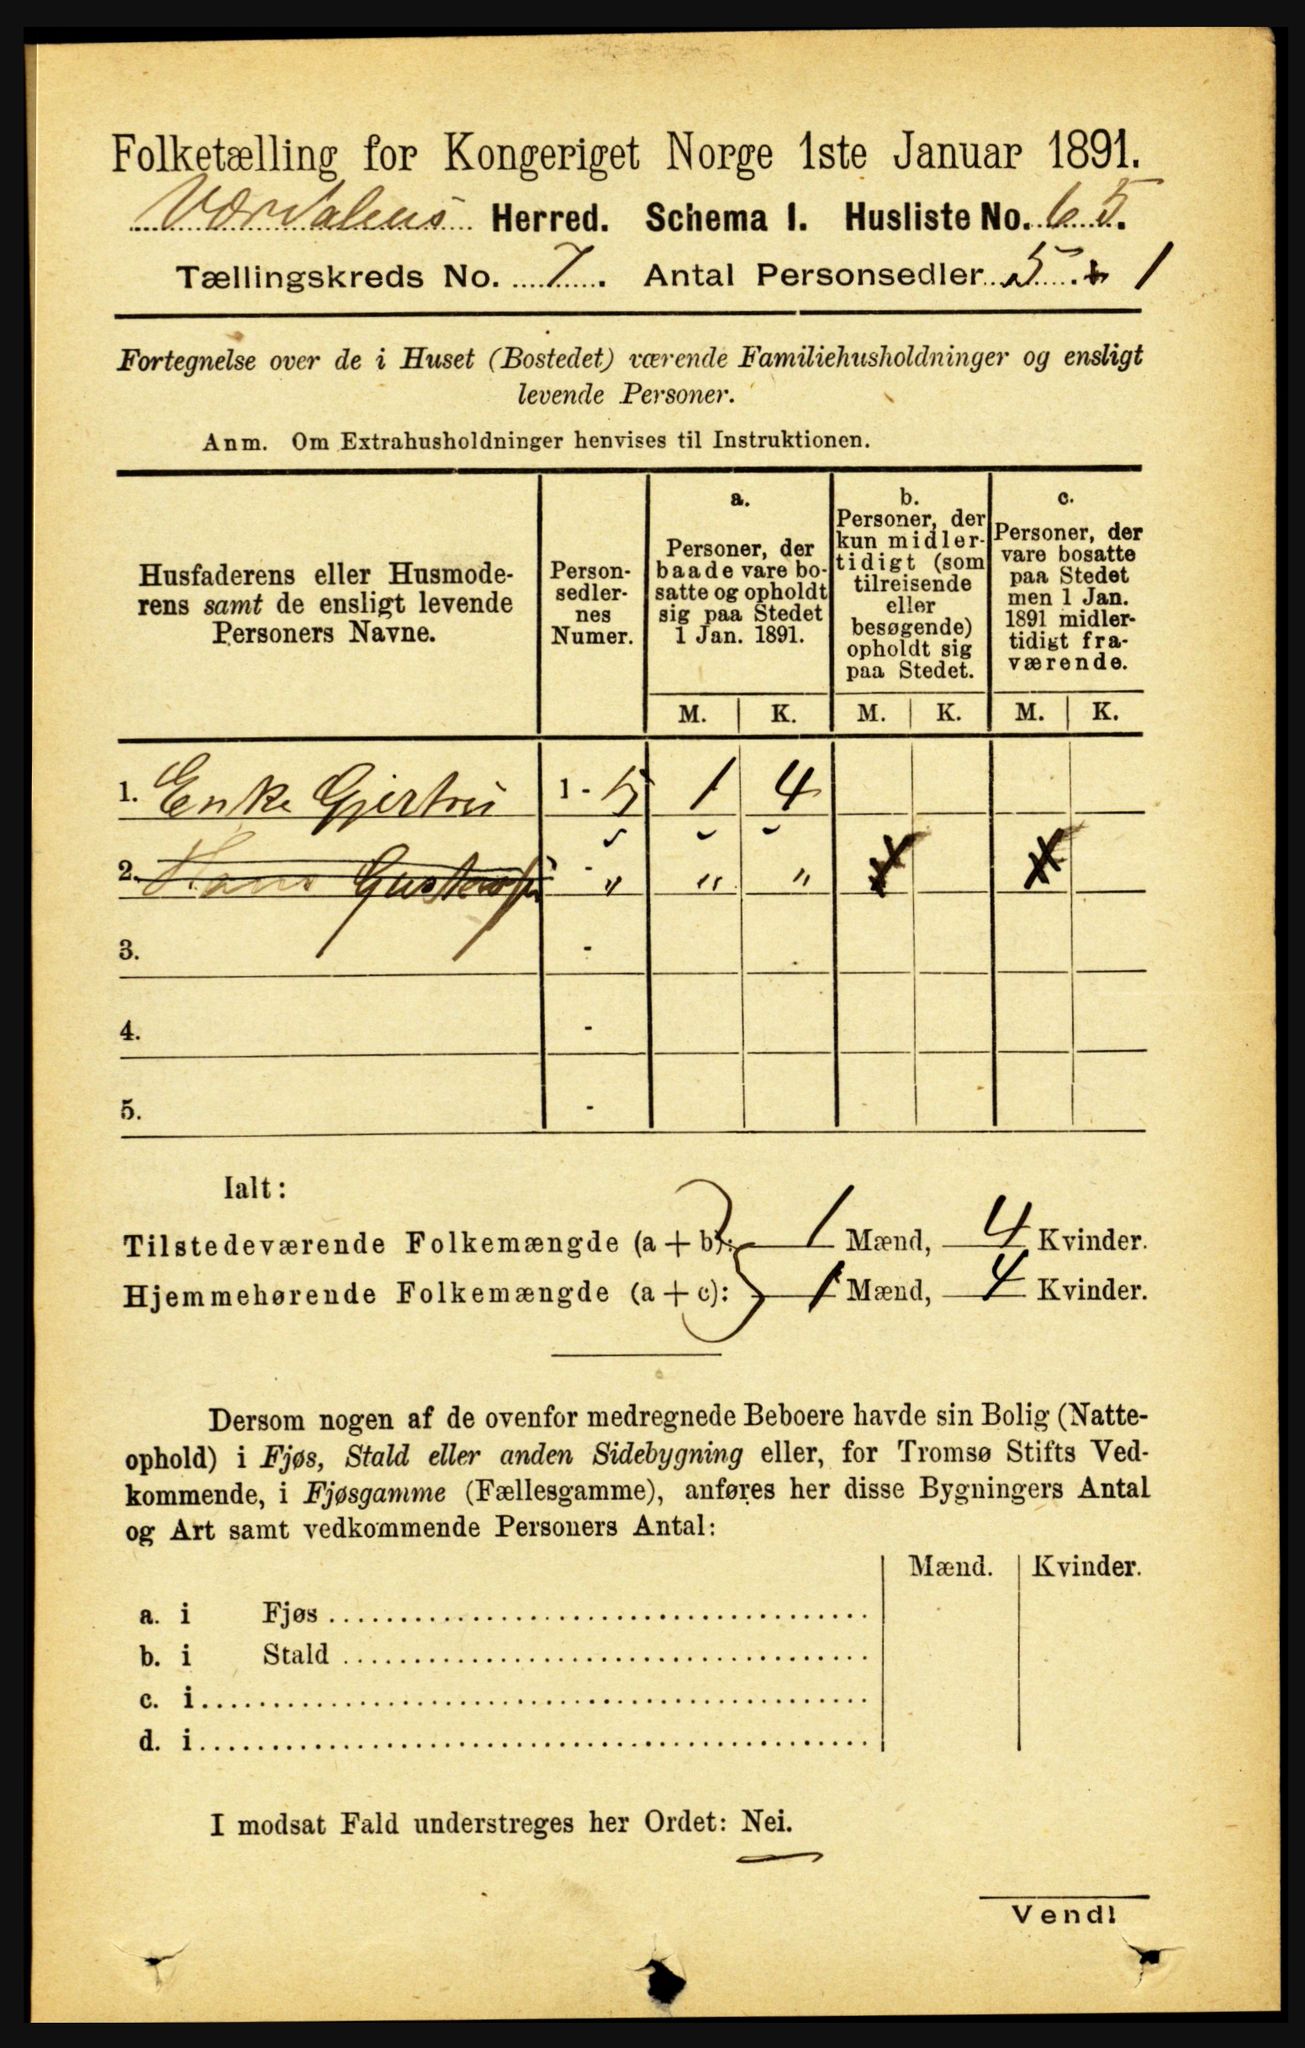 Folketælling for Kongeriget Norge 1ste Januar 1891.
Værdalens Herred. Schema I. Husliste No. 65.
Tællingskreds No. 7. Antal Personsedler 5 + 1
Fortegnelse over de i Huset (Bostedet) værende Familiehusholdninger og ensligt
levende Personer.
Anm. Om Extrahusholdninger henvises til Instruktionen.
Husfaderens eller Husmode-
rens samt de ensligt levende
Personers Navne.
Person-
sedler-
nes
Numer.
a.
Personer, der
baade vare bo-
satte og opholdt
sig paa Stedet
1 Jan. 1891.
b.
Personer, der
kun midler-
tidigt (som
tilreisende
eller
besøgende)
opholdt sig
paa Stedet.
c.
Personer, der
vare bosatte
paa Stedet
men 1 Jan.
1891 midler-
tidigt fra-
værende.
M. K. M. K. M. K.
1. Enke Gjertru 1 - 5 1 4
2. Hans - " " "
3. -
4. -
5. -
Ialt:
Tilstedeværende Folkemængde (a + b): 1 Mænd, 4 Kvinder.
Hjemmehørende Folkemængde (a + c): 1 Mænd, 4 Kvinder.
Dersom nogen af de ovenfor medregnede Beboere havde sin Bolig (Natte-
ophold) i Fjøs, Stald eller anden Sidebygning eller, for Tromsø Stifts Ved-
kommende, i Fjøsgamme (Fællesgamme), anføres her disse Bygningers Antal
og Art samt vedkommende Personers Antal:
Mænd. Kvinder.
a. i Fjøs
b. i Stald
c. i
d. i
I modsat Fald understreges her Ordet: Nei.
Vend!